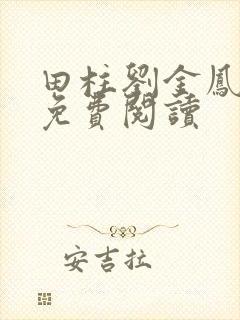 田柱劉金鳳
免費閱讀
安吉拉